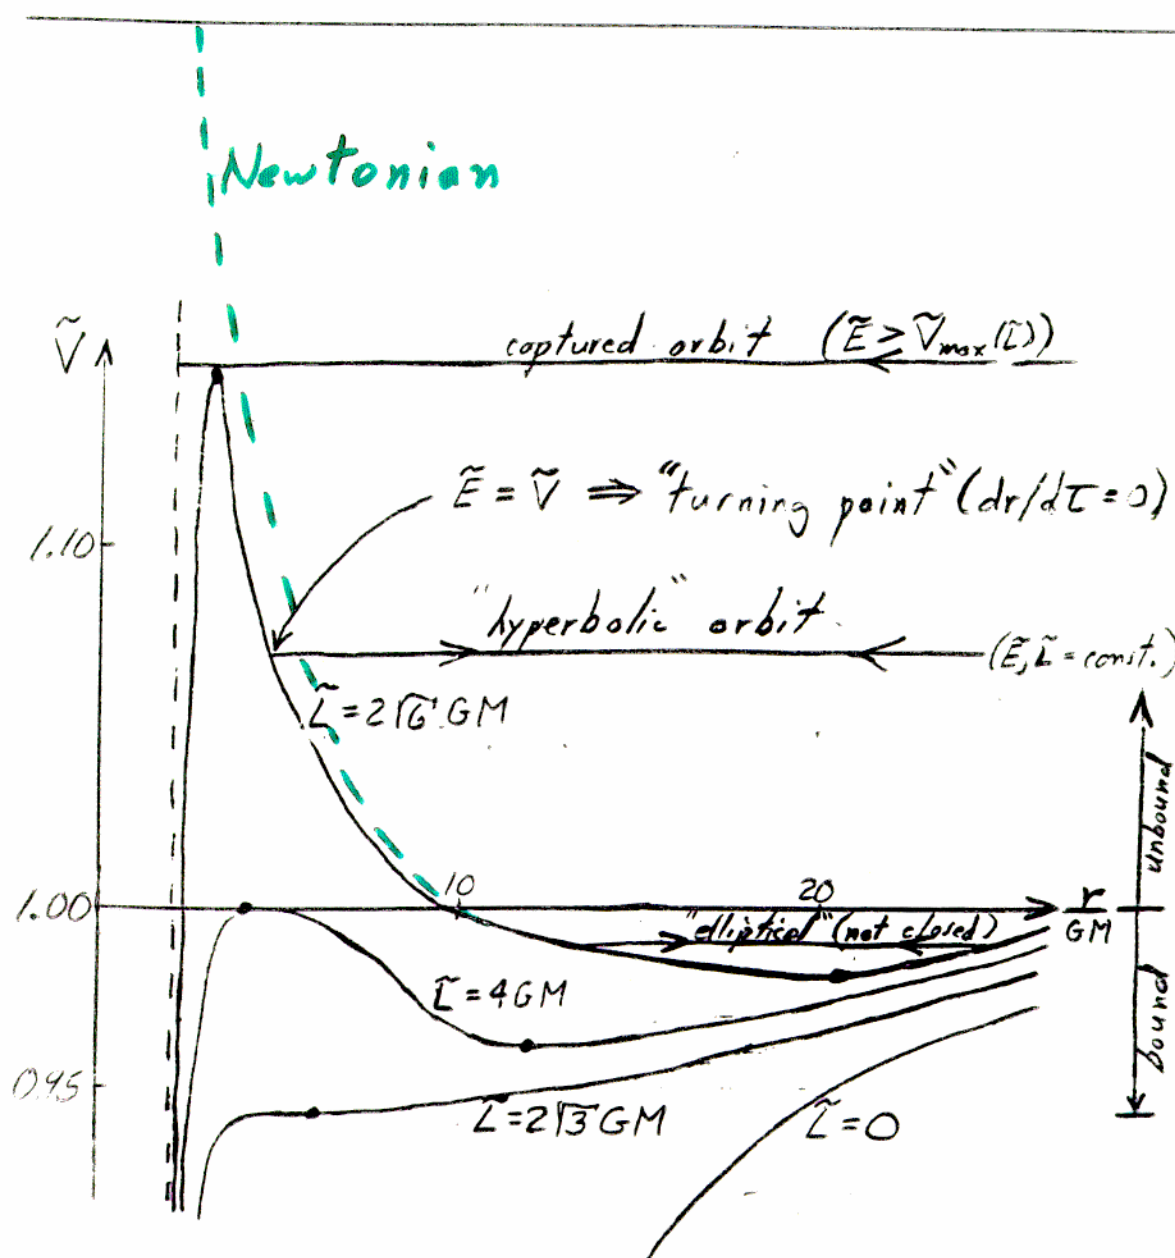 Newtonian
Ṽ
captured orbit (Ẽ ≥ Ṽmax(L̃))
Ẽ = Ṽ ⇒ "turning point" (dr/dτ = 0)
1.10
"hyperbolic" orbit
(Ẽ, L̃ = const.)
L̃ = 2√6 GM
unbound
1.00
10
20
r/GM
"elliptical" (not closed)
L̃ = 4GM
bound
0.95
L̃ = 2√3 GM
L̃ = 0